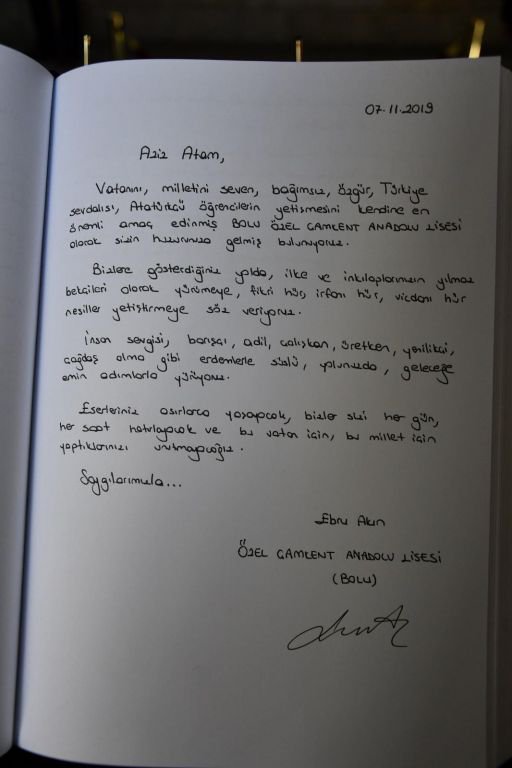 07.11.2019
Aziz Atam,
Vatanını, milletini seven, bağımsız, özgür, Türkiye
sevdalısı, Atatürkçü öğrencilerin yetişmesini kendine en
önemli amaç edinmiş BOLU ÖZEL ÇAMLENT ANADOLU LİSESİ
olarak sizin huzurunuza gelmiş bulunuyoruz.
Bizlere gösterdiğiniz yolda, ilke ve inkılaplarınızın yılmaz
bekçileri olarak yürümeye, fikri hür, irfanı hür, vicdanı hür
nesiller yetiştirmeye söz veriyoruz.
İnsan sevgisi, barışçı, adil, çalışkan, üretken, yenilikçi,
çağdaş olma gibi erdemlerle süslü, yolunuzda, geleceğe
emin adımlarla yürüyoruz.
Eserleriniz asırlarca yaşayacak, bizler sizi her gün,
her saat hatırlayacak ve bu vatan için, bu millet için
yaptıklarınızı unutmayacağız.
Saygılarımla...
Ebru Akın
ÖZEL ÇAMLENT ANADOLU LİSESİ
(BOLU)